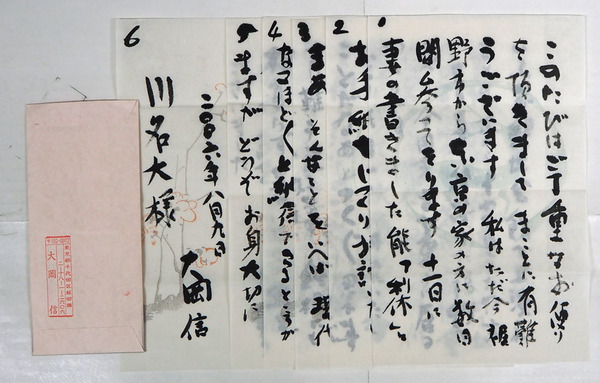 このたびはご丁重なお便り
を頂きまして まことに有難
うございます 私はただ今裾
野市から東京の家の方に数日
間参っております 十一日に
1
妻の書きました能
2
お手紙
3
まあ そんなことをいへば 現代
4
なるほど と納得できるところが
5
ますが どうぞ お身大切に
二〇〇六年八月九日
大岡信
6
川名大様
東京都千代田区
大岡信